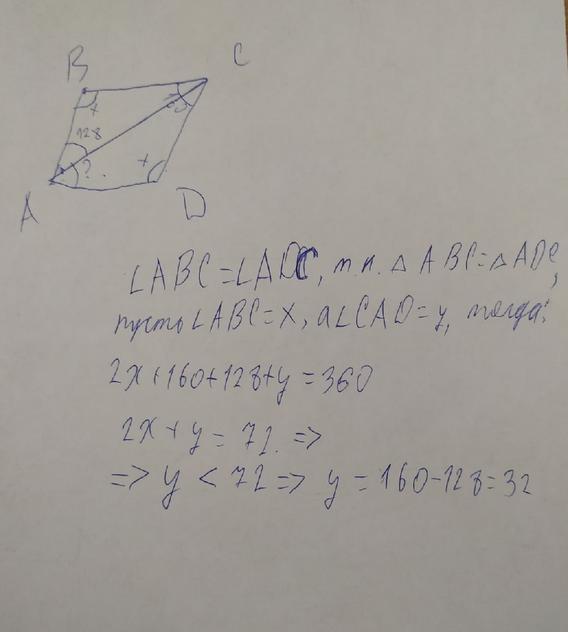 B
C
x
128
?
x
A
D
∠ABC=∠ADC, т.к. △ABC=△ADC,
пусть ∠ABC=x, а∠CAD=y, тогда:
2x+160+128+y=360
2x+y=72 =>
=> y < 72 => y = 160-128=32